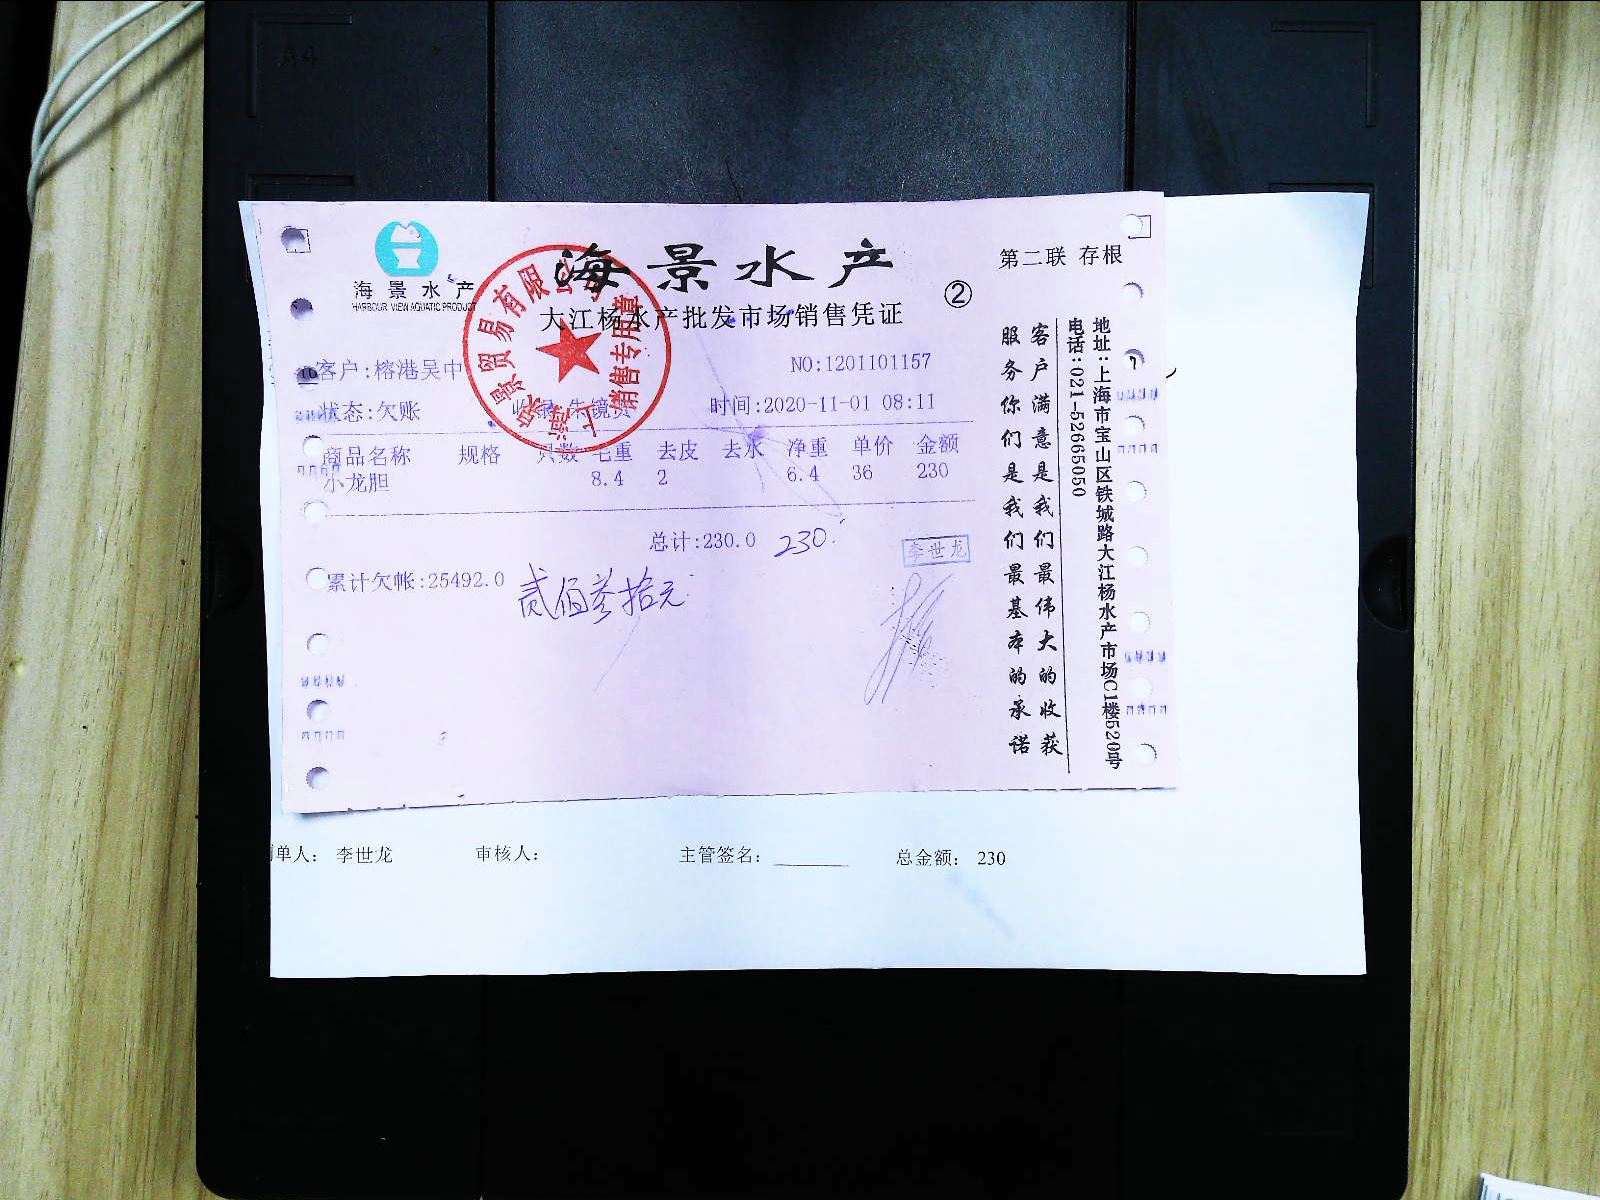 海景水产
HARBOUR VIEW AQUATIC PRODUCT
海景水产
大江杨水产批发市场销售凭证
②
第二联 存根
客户:榕港吴中
NO:1201101157
状态:欠账
时间:2020-11-01 08:11
商品名称 规格 只数 毛重 去皮 去水 净重 单价 金额
小龙胆 8.4 2 6.4 36 230
总计:230.0 230.
累计欠帐:25492.0
贰佰叁拾元
李世龙
销售专用章
客户满意是我们最伟大的收获
服务你们是我们最基本的承诺
地址:上海市宝山区铁城路大江杨水产市场C1楼520号
电话:021-52665050
单人: 李世龙 审核人: 主管签名: 总金额: 230